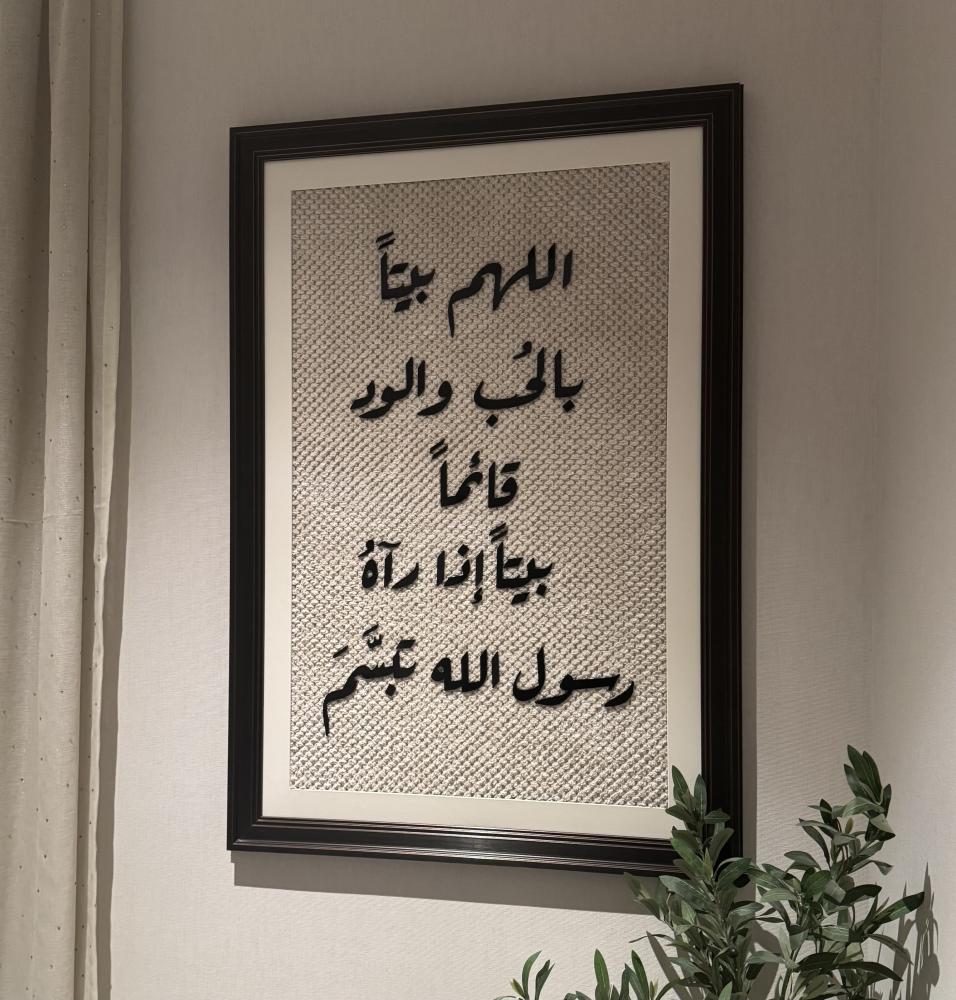 اللهم بيتاً
بالحُب والود
قائماً
بيتاً إذا رآهُ
رسول الله تبسَّمَ